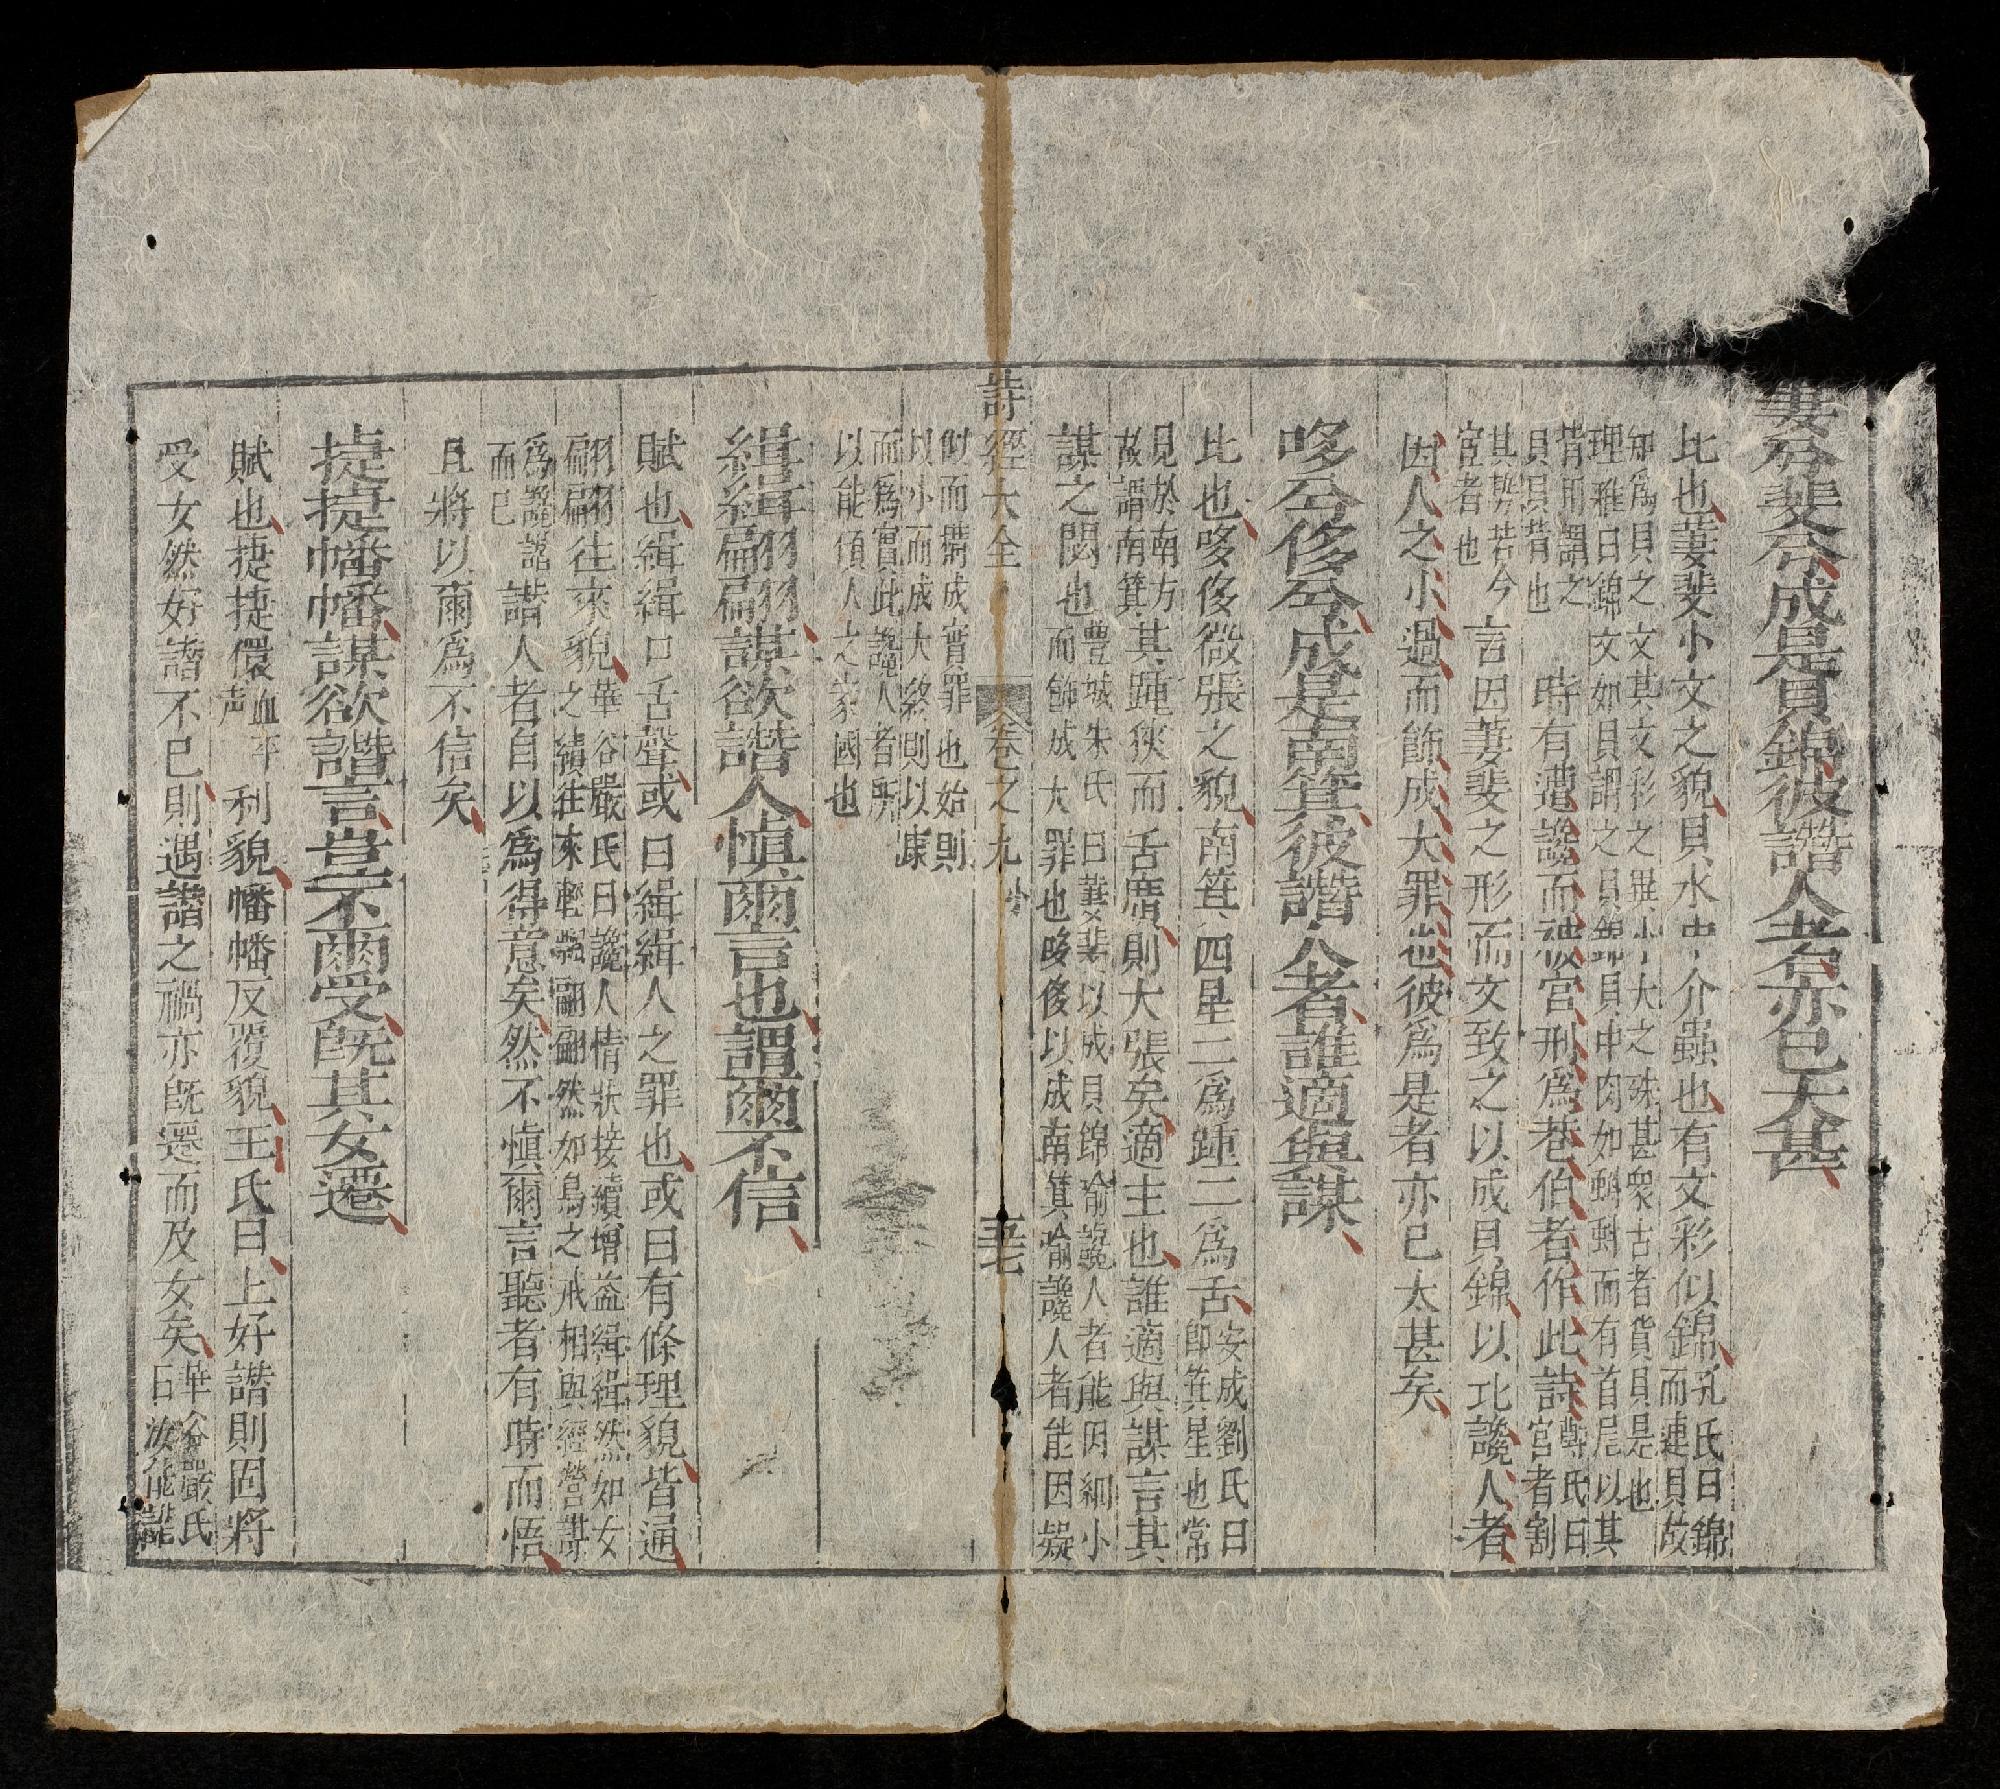 萋兮斐兮成是貝錦彼譖人者亦巳大甚
比也萋斐小文之貌貝水中介蟲也有文彩似錦孔氏曰錦
而連貝故
知爲貝之文其文彩之異小大之殊甚衆古者貨貝是也
理雅曰錦文如貝謂之貝錦貝中肉如蝌蚪而有首尾以其
背用謂之
貝貝背也
時有遭讒而被宮刑爲巷伯者作此詩鄭氏曰
宮者割
其勢若今
宦者也
言因萋斐之形而文致之以成貝錦以比讒人者
因人之小過而飾成大罪也彼爲是者亦已太甚矣
哆兮侈兮成是南箕彼譖人者誰適與謀
比也哆侈微張之貌南箕四星二爲踵二爲舌安成劉氏曰
即箕星也常
見於南方
故謂南箕
其踵狹而舌廣則大張矣適主也誰適與謀言其
謀之閟也豐城朱氏曰萋斐以成貝錦喻讒人者能因細小
而飾成大罪也哆侈以成南箕喻讒人者能因疑
似而搆成實罪也始則
以小而成大終則以虛
而爲實此讒人者所
以能傾人之家國也
詩經大全
卷之九
五七
緝緝翩翩謀欲譖人慎爾言也謂爾不信
賦也緝緝口舌聲或曰緝緝人之罪也或曰有條理貌皆通
翩翩往來貌華谷嚴氏曰讒人情狀接續增益緝緝然如女
之績往來輕飄翩翩然如鳥之飛相與經營謀
爲讒譖
而已
譖人者自以爲得意矣然不慎爾言聽者有時而悟
且將以爾爲不信矣
捷捷幡幡謀欲譖言豈不爾受旣其女遷
賦也捷捷儇利貌幡幡反覆貌王氏曰上好譖則固將
受女然好譖不已則遇譖之禍亦旣遷而及女矣華谷嚴氏
曰汝能譖